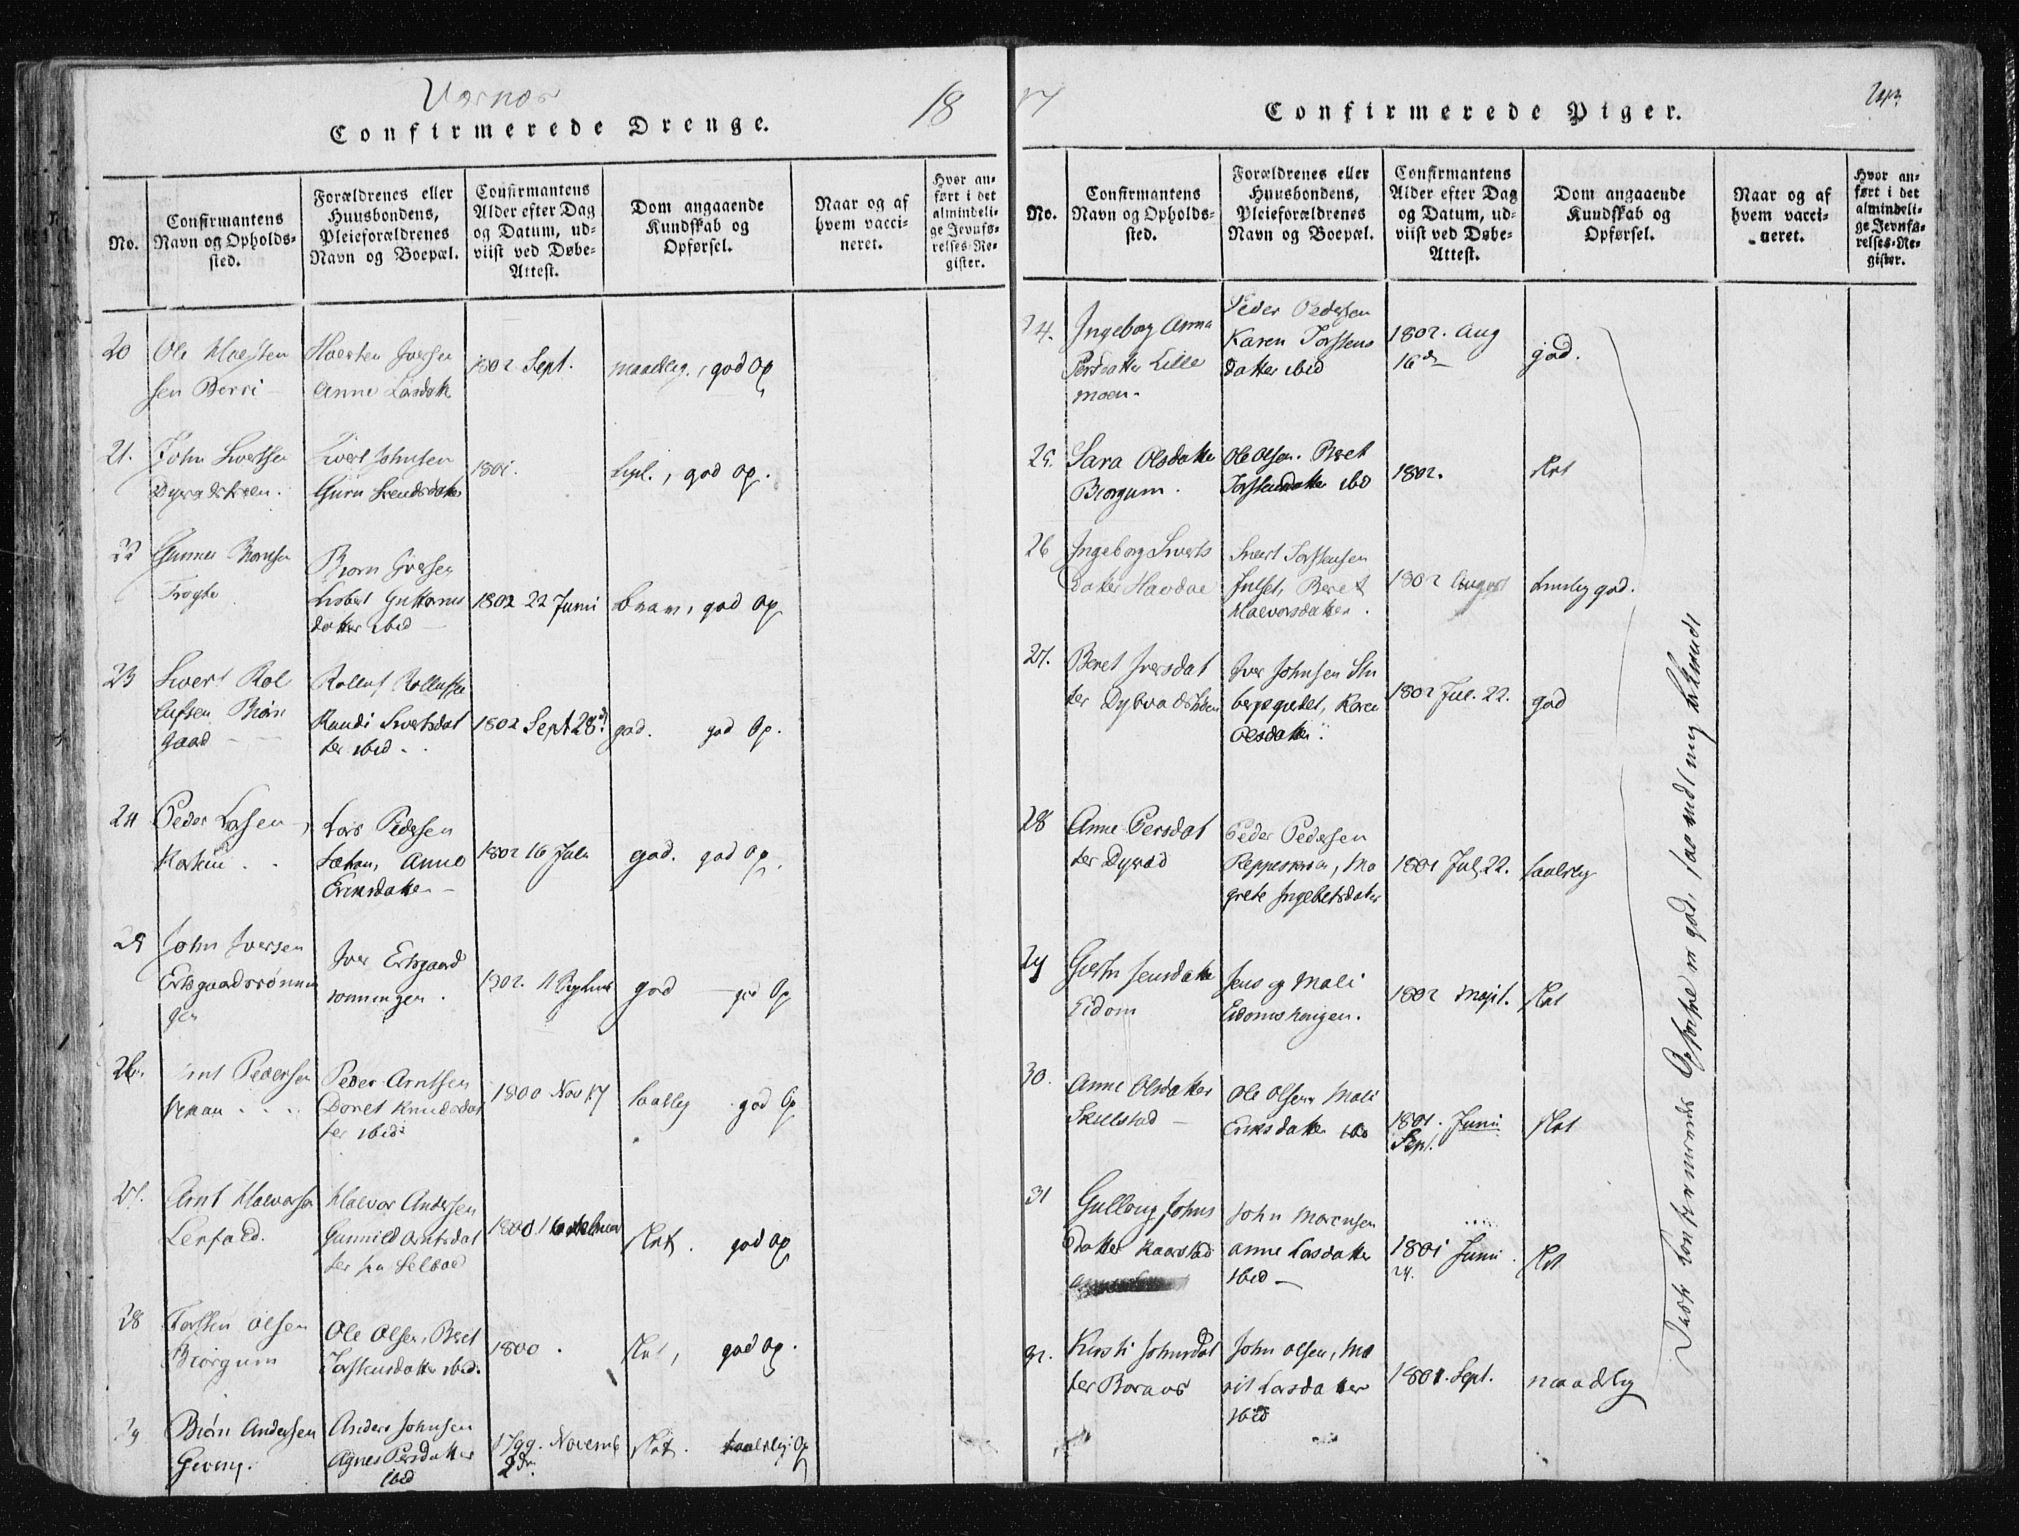 Værnæs
18
Confirmerede Drenge.
No.
Confirmantens
Navn og Opholds-
sted.
Forældrenes eller
Huusbondens,
Pleieforældrenes
Navn og Boepæl.
Confirmantens
Alder efter Dag
og Datum, ud-
viist ved Døbe-
Attest.
Dom angaaende
Kundskab og
Opførsel.
Naar og af
hvem vacci-
neret.
Hvor an-
ført i det
almindeli-
ge Jevnfø-
relses-Re-
gister.
20
Ole
sen Berri
Iversen
Anne Larsdatter
1802 Sept.
maadelig, god Op
21.
John Sivertsen
Sivert Johnsen
Guru Svendsdatter
1801.
god Op.
22
Gunner
Biørn Iversen
Lisbet Guttorms
datter ibid
1802 22 Junii
god Op
23
Sivert Rol
lufsen Biørn
gaard
Rolluf Rollufsen
Randi Sivertsdat
ter ibid
1802 Sept 28
god. god Op.
24
Peder Larsen
Lars Pedersen
Anne
Eriksdatter
1802 16 Julii
god. god Op.
25
John Iversen
Ertsgaardsrønnin
gen
Iver Ertsgaard
rønningen.
1802. 11
god god Op
26.
Arnt Pedersen
Peder Arntsen
Doret Knudsdat
ter ibid:
1800 Nov 17
taalelig god Op
27.
Arnt Halvorsen
Lerfald.
Halvor Andersen
Gunnild Arntsdat
ter fra Selboe
1800 16
slet. god Op
28
Torsten Olsen
Biørgum
Ole Olsen, Beret
Torstensdatter ibid.
1800.
slet, god Op.
29
Biørn Andersen
Geving.
Anders Johnsen
Agnes Persdatter
ibid
1799. Novemb
2
slet. taalelig Op
17
243
Confirmerede Piger.
No.
Confirmantens
Navn og Opholds-
sted.
Forældrenes eller
Huusbondens,
Pleieforældrenes
Navn og Boepæl.
Confirmantens
Alder efter Dag
og Datum, ud-
viist ved Døbe-
Attest.
Dom angaaende
Kundskab og
Opførsel.
Naar og af
hvem vacci-
neret.
Hvor an-
ført i det
almindeli-
ge Jevnfø-
relses-Re-
gister.
24.
Ingeborg Anna
Persdatter Lille
moen.
Peder Pedersen
Karen Torstens
datter ibid
1802. Aug
16
god.
25.
Sara Olsdatter
Biørgum.
Ole Olsen. Beret
Torstensdatter ibid
1802.
slet
26
Ingeborg Siverts
datter Havdal
Sivert Torstensen
Julset, Beret
Halvorsdatter.
1802 August
god.
27.
Beret Iversdat
ter
Iver Johnsen Stu
Karen
Olsdatter.
1802 Jul. 22.
god
28
Anne Persdat
ter Dyrad
Peder Pedersen
Reppesmoen, Ma
grete Ingebretsdatter
1801 Jul 22.
taalelig
29
Jensdatter
Eidom
Jens og Mali
1802
slet
30.
Anne Olsdatter
Skielstad
Ole Olsen, Mali
Eriksdatter ibid
1801. Junii
Sept.
slet
31
Gullaug Johns
datter Kaarstad
John
Anne Larsdatter
ibid
1801 Junii
24.
slet
32.
Kirsti Johnsdat
ter Boraas
John Olsen, Ma
rit Larsdatter
ibid
1801. Sept.
maadelig
Disse Confirmerendes Opførsel er god, saavidt mig bekiendt